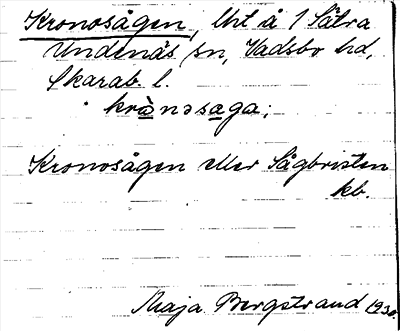 Kronosågen, lht å 1 Sätra
Undenäs sn, Vadsbo hd,
Skarab. l.
krànəsaga;
Kronosågen eller Sågbristen
kb.
Maja Bergstrand 1930.